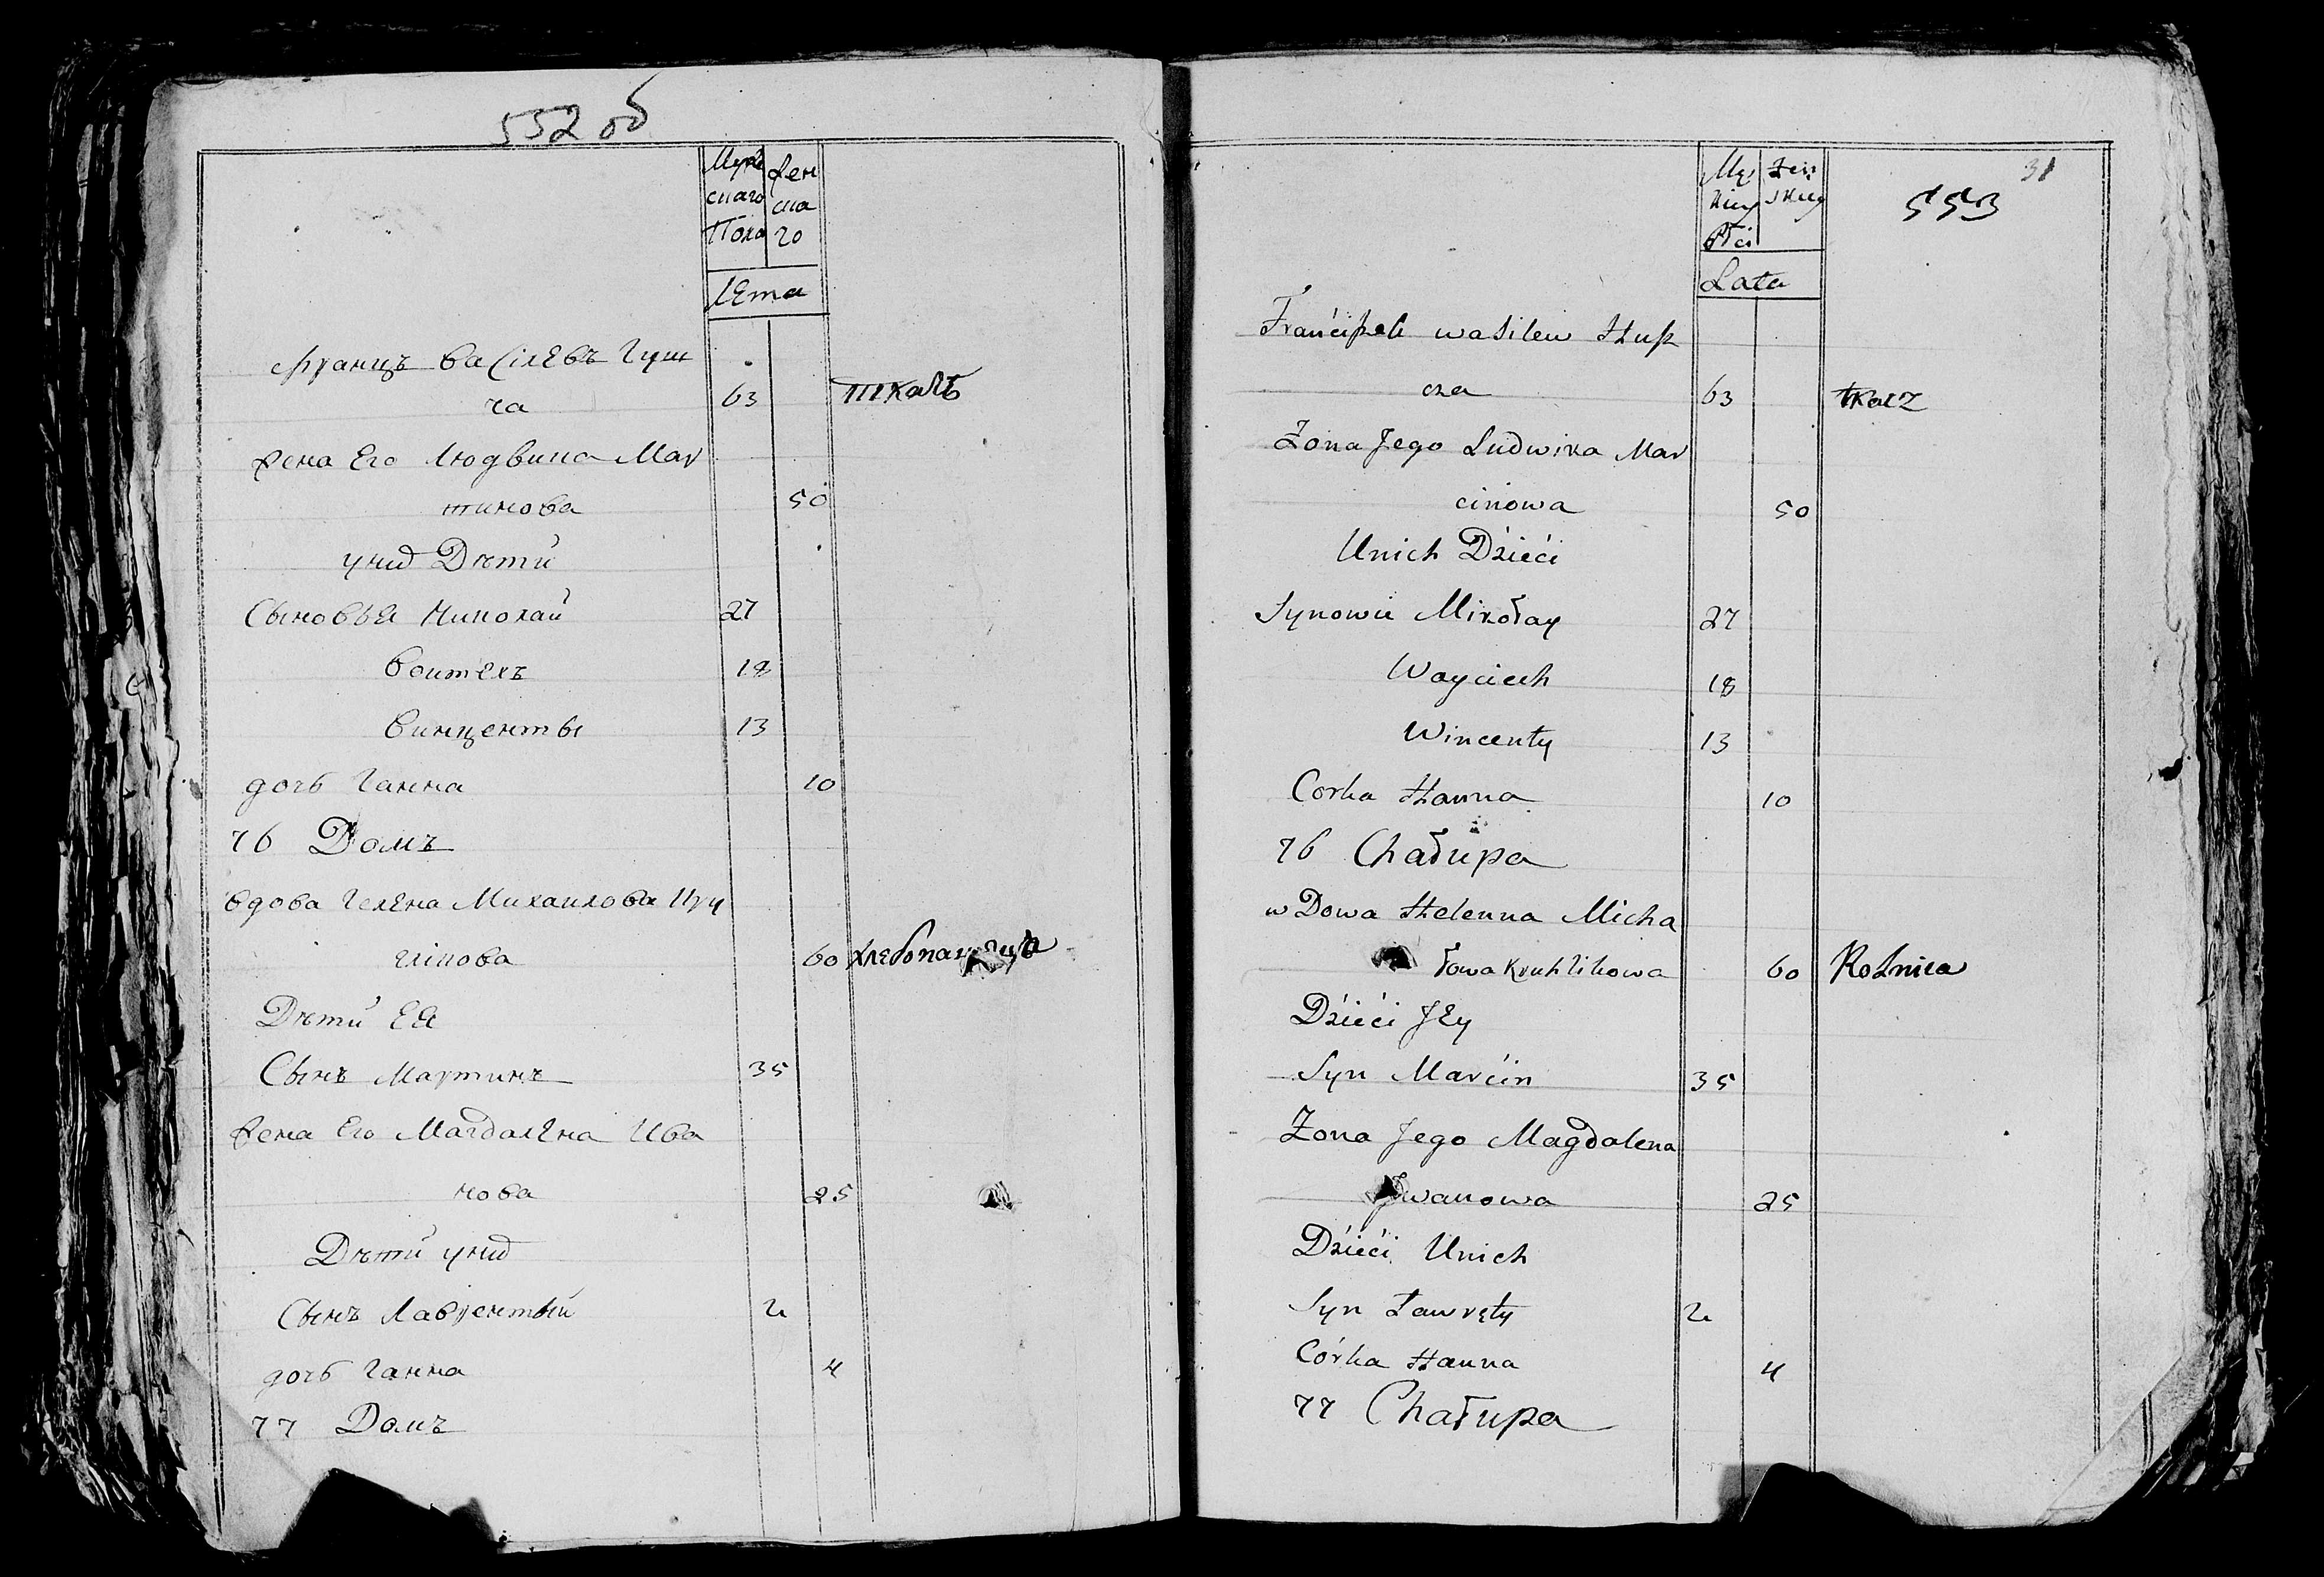 552 об
Мужескаго Пола
Женскаго
Лета
Францъ васілевъ Гуш
ча 63 ткачъ
Жена Его Людвика Мар
тинова 50
униҳ Дѣти
Сыновья Николай 27
воитехъ 18
винценты 13
дочь Ганна 10
76 Домъ
вдова Гелена Михаилова Кру
гликова 60
Дѣти Ея
Сынъ Мартинъ 35
Жена Его Магдалена Ива
нова 25
Дѣти униҳ
Сынъ Лаврентый 2
дочь Ганна 4
77 Домъ
31
553
Męzkiey Płci
Żeńskiey
Lata
Franciszek wasilew Husz
cza 63 tkacz
Żona Jego Ludwika Mar
cinowa 50
Unich Dzieći
Synowie Mikołay 27
Wayciech 18
Wincenty 13
Corka Hanna 10
76 Chałupa
wDowa Helenna Micha
łowa Kruhlikowa 60 Rolnica
Dzieći JEy
Syn Marcin 35
Zona Jego Magdalena
Jwanowa 25
Dzieći Unich
Syn Ławręty 2
Córka Hanna 4
77 Chałupa